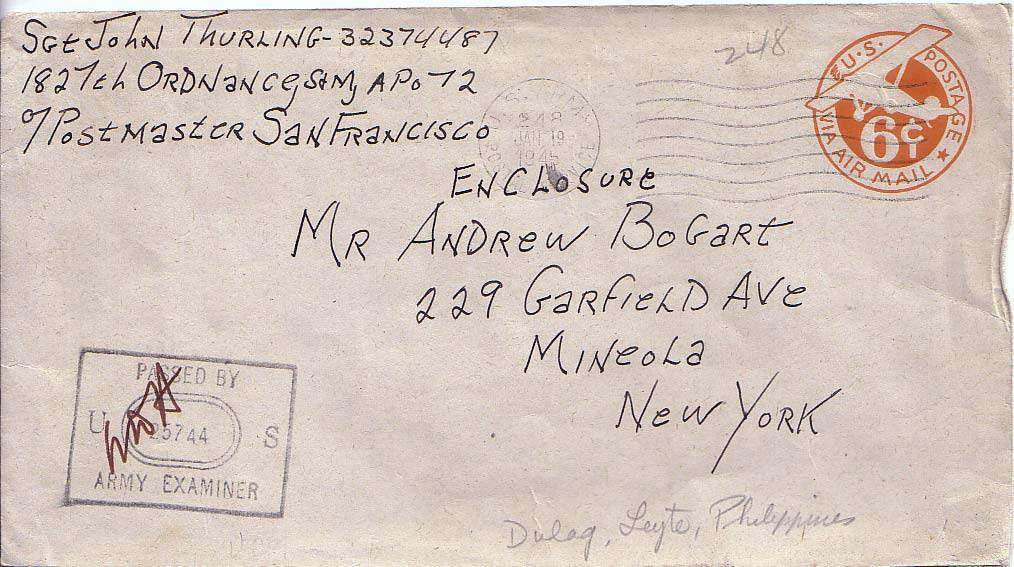 Sgt John Thurling - 32374487
1827th Ordnance, S&M, APO 72
℅ Postmaster San Francisco
248
U.S. POSTAGE
6¢
VIA AIR MAIL
JAN 19
1945
Enclosure
Mr Andrew Bogart
229 Garfield Ave
Mineola
New York
PASSED BY
U S
25744
ARMY EXAMINER
Dulag, Leyte, Philippines